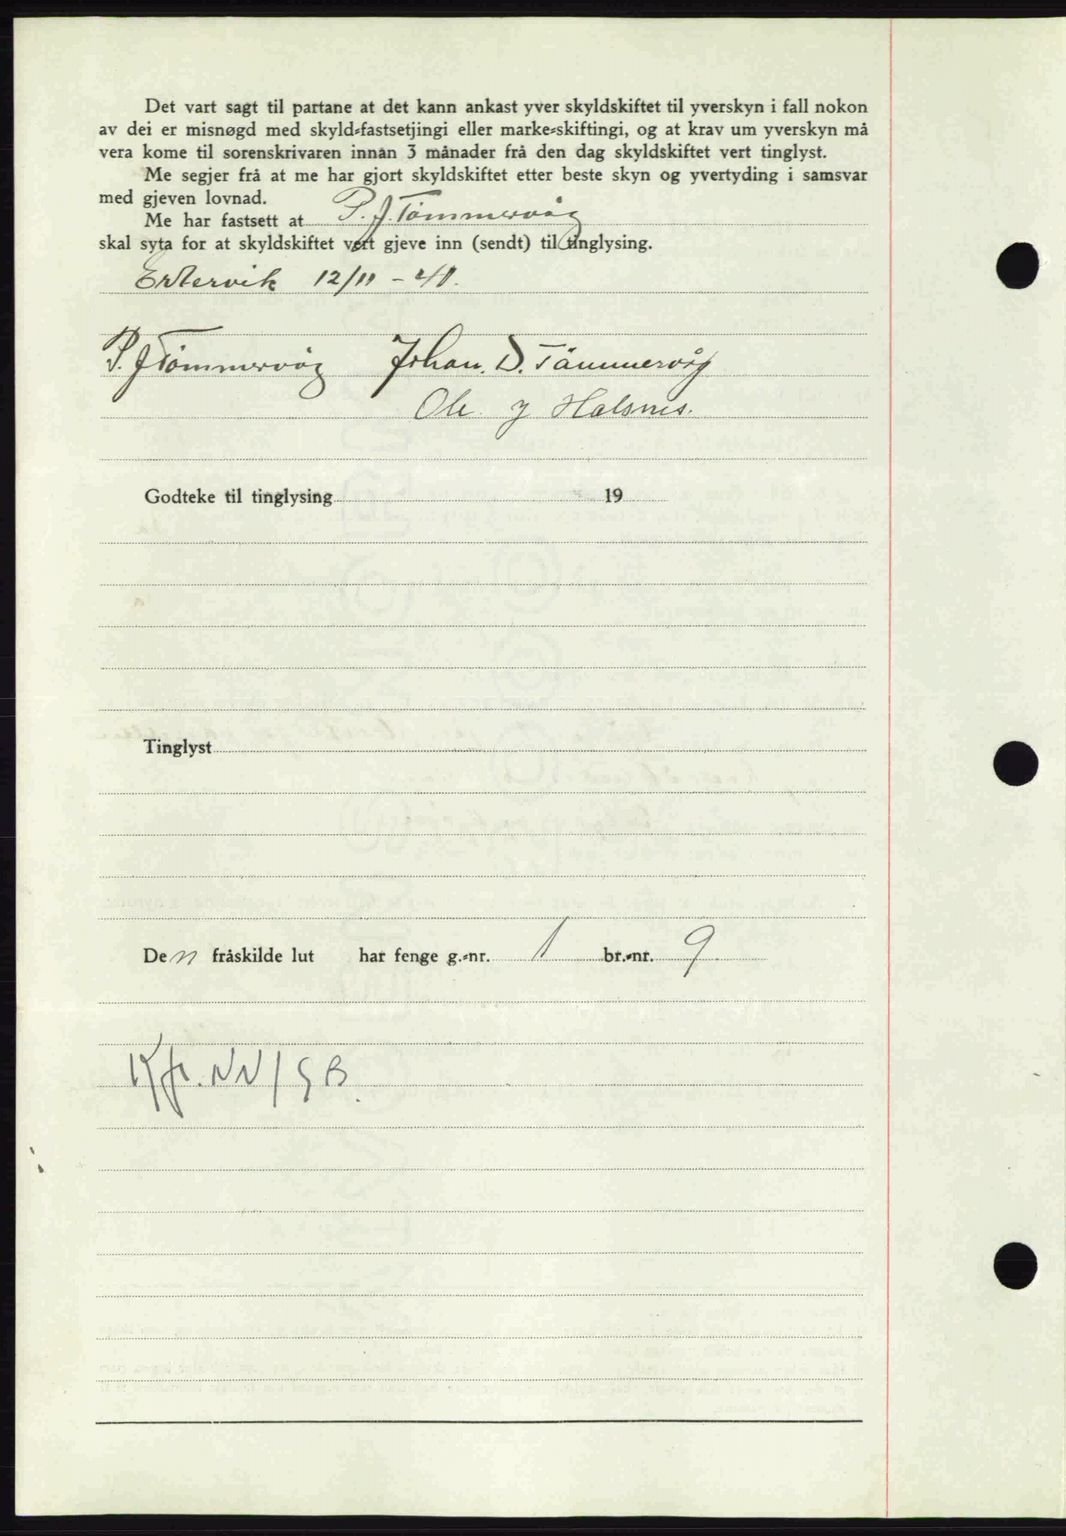 Det vart sagt til partane at det kann ankast yver skyldskiftet til yverskyn i fall nokon
av dei er misnøgd med skyld-fastsetjingi eller marke-skiftingi, og at krav um yverskyn må
vera kome til sorenskrivaren innan 3 månader frå den dag skyldskiftet vert tinglyst.
Me segjer frå at me har gjort skyldskiftet etter beste skyn og yvertyding i samsvar
med gjeven lovnad.
Me har fastsett at P. J. Tømmervåg
skal syta for at skyldskiftet vert gjeve inn (sendt) til tinglysing.
12/11 - 40.
P. J Tømmervåg Johan. D. Tømmervåg
Ole. J Halsnes.
Godteke til tinglysing 19
Tinglyst
Den fråskilde lut har fenge g.-nr. 1 br.-nr. 9
Kfr. NN/GB.